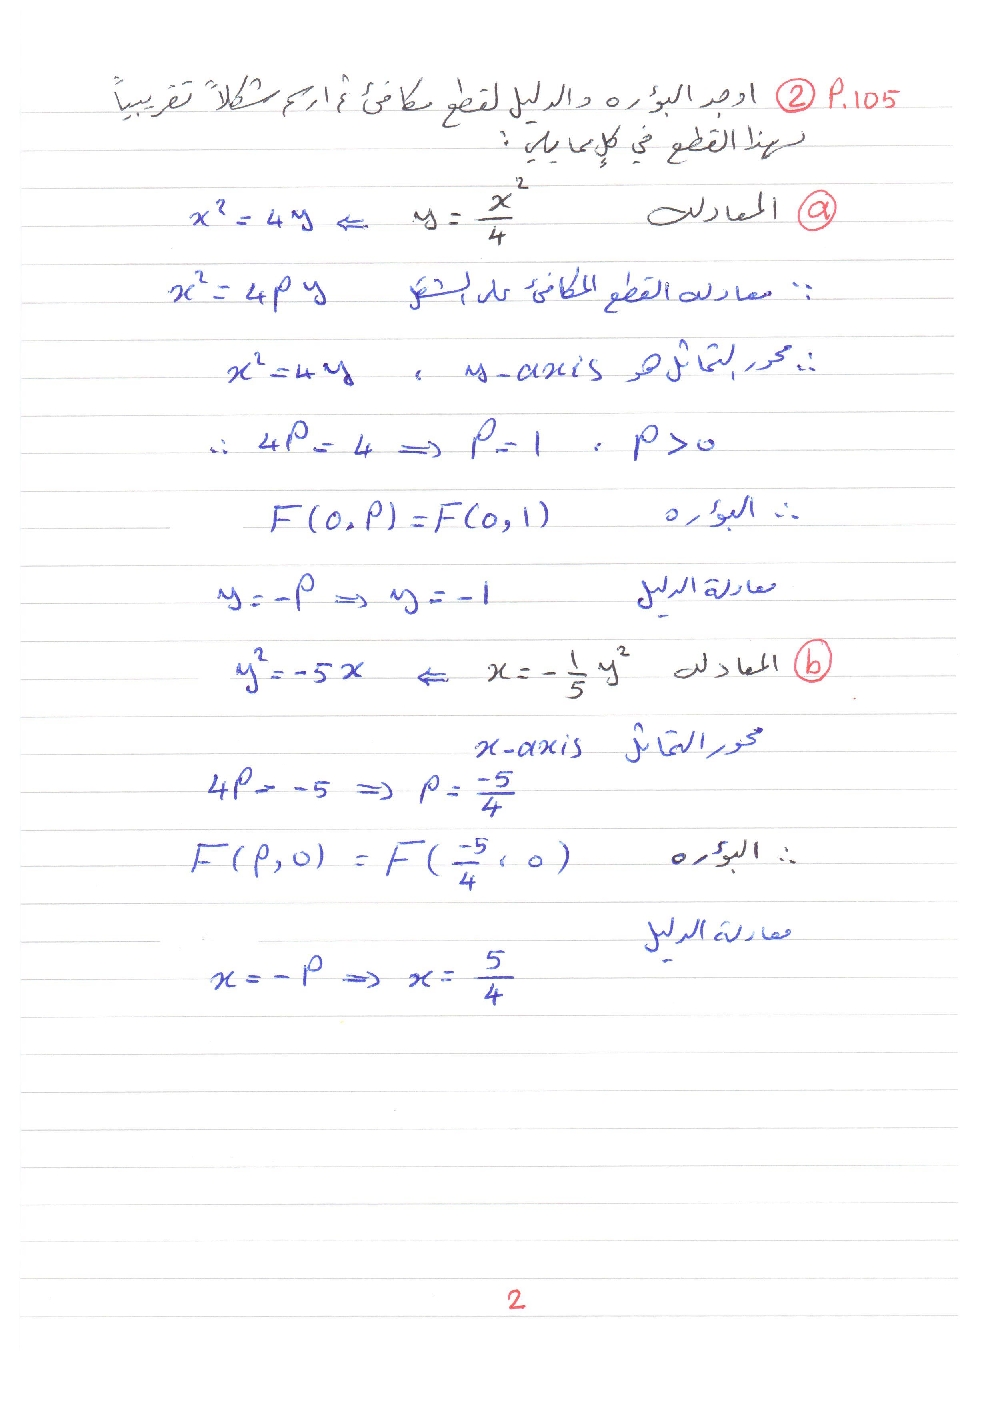 P.105 ② اوجد البؤره والدليل لقطع مكافئ ثم ارسم شكلاً تقريبياً
لهذا القطع في كلٍ مما يلي :
ⓐ المعادله y = x²/4 ⇐ x² = 4y
∵ معادله القطع المكافئ على الشكل x² = 4py
∴ محور التماثل هو y-axis ، x² = 4y
∴ 4P = 4 ⇒ P = 1 ، P > 0
∴ البؤره F(0,P) = F(0,1)
معادلة الدليل y = -P ⇒ y = -1
ⓑ المعادله x = -1/5 y² ⇐ y² = -5x
محور التماثل x-axis
4P = -5 ⇒ P = -5/4
∴ البؤره F(P,0) = F(-5/4 ، 0)
معادلة الدليل
x = -P ⇒ x = 5/4
2